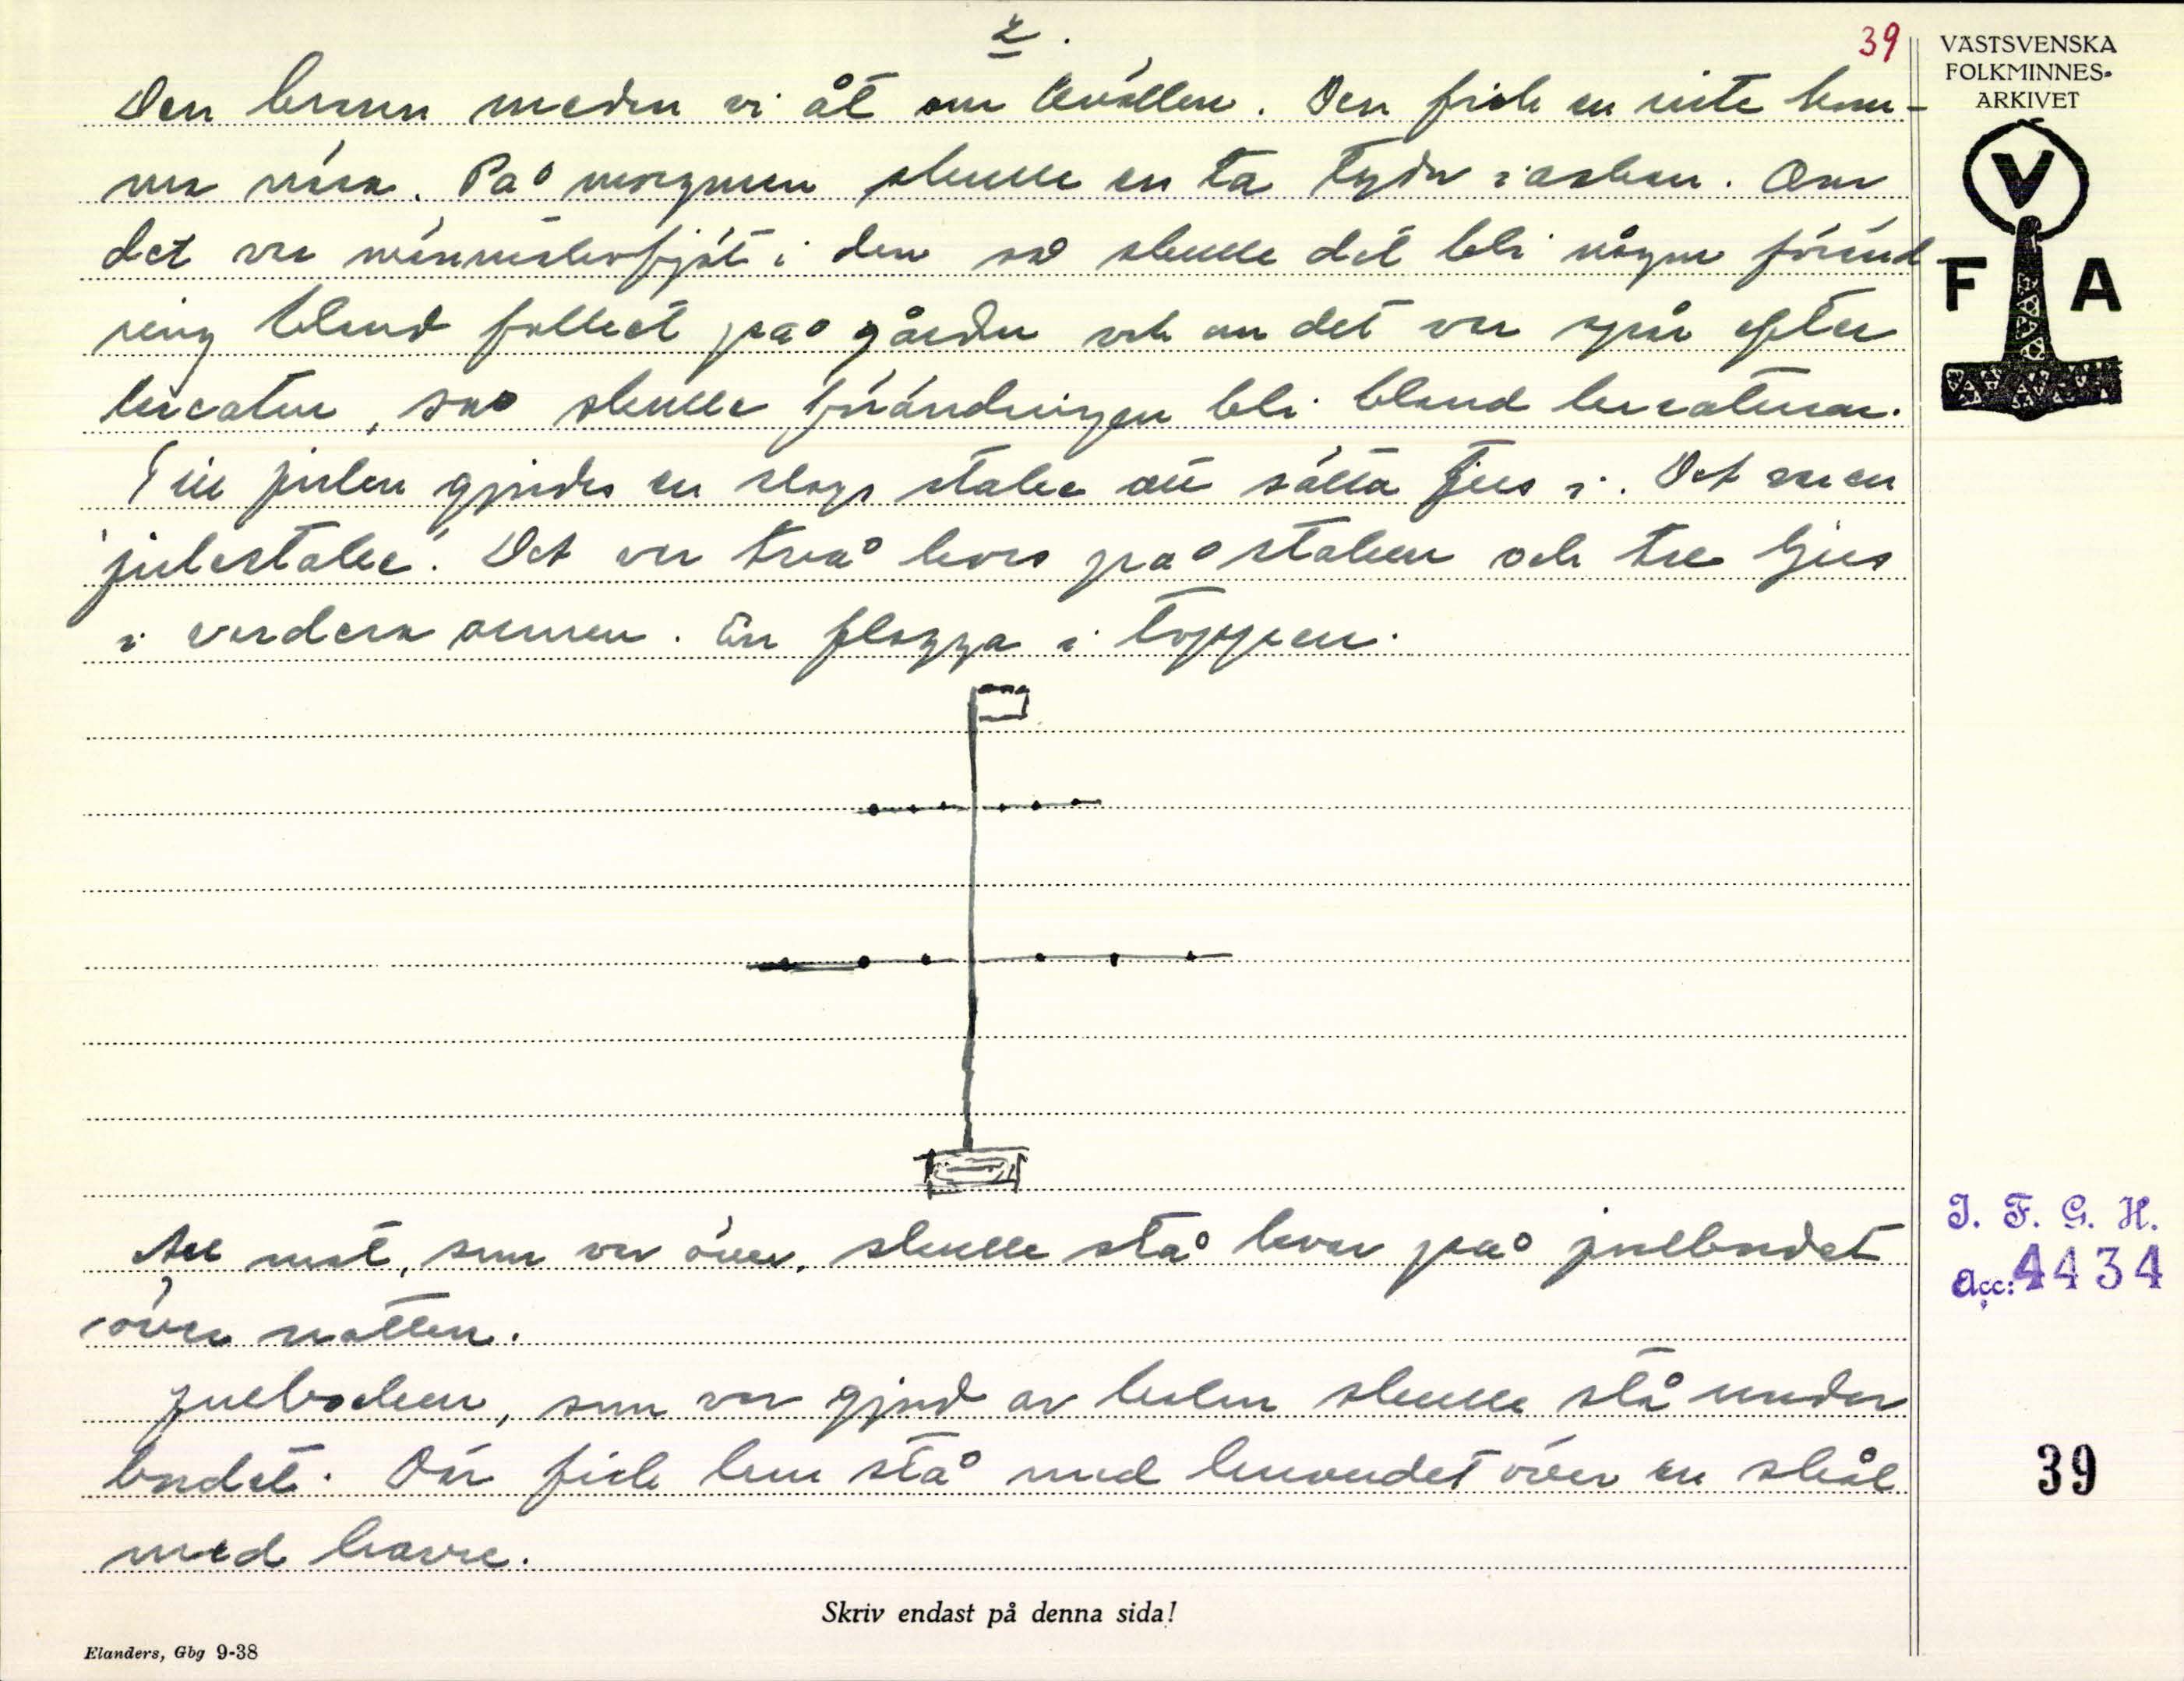 2.
39
VÄSTSVENSKA
FOLKMINNES-
ARKIVET
V
F A
Den brann medan vi åt om kvällen. Den fick en inte kom-
ma nära. På morgonen skulle en ta tydor i askan. Om
det var människofjät i den så skulle det bli någon föränd-
ring bland folket på gården och om det var spår efter
kreatur, så skulle förändringen bli bland kreaturen.
Till julen gjordes en slags stake att sätta ljus i. Det var en
"julestake". Det var två kors på staken och tre ljus
i vardera armen. En flagga i toppen.
All mat, som var över, skulle stå kvar på julbordet
över natten.
Julbocken, som var gjord av halm skulle stå under
bordet. Där fick han stå med huvudet över en skål
med havre.
I. F. G. H.
Acc: 4434
39
Skriv endast på denna sida!
Elanders, Gbg 9-38